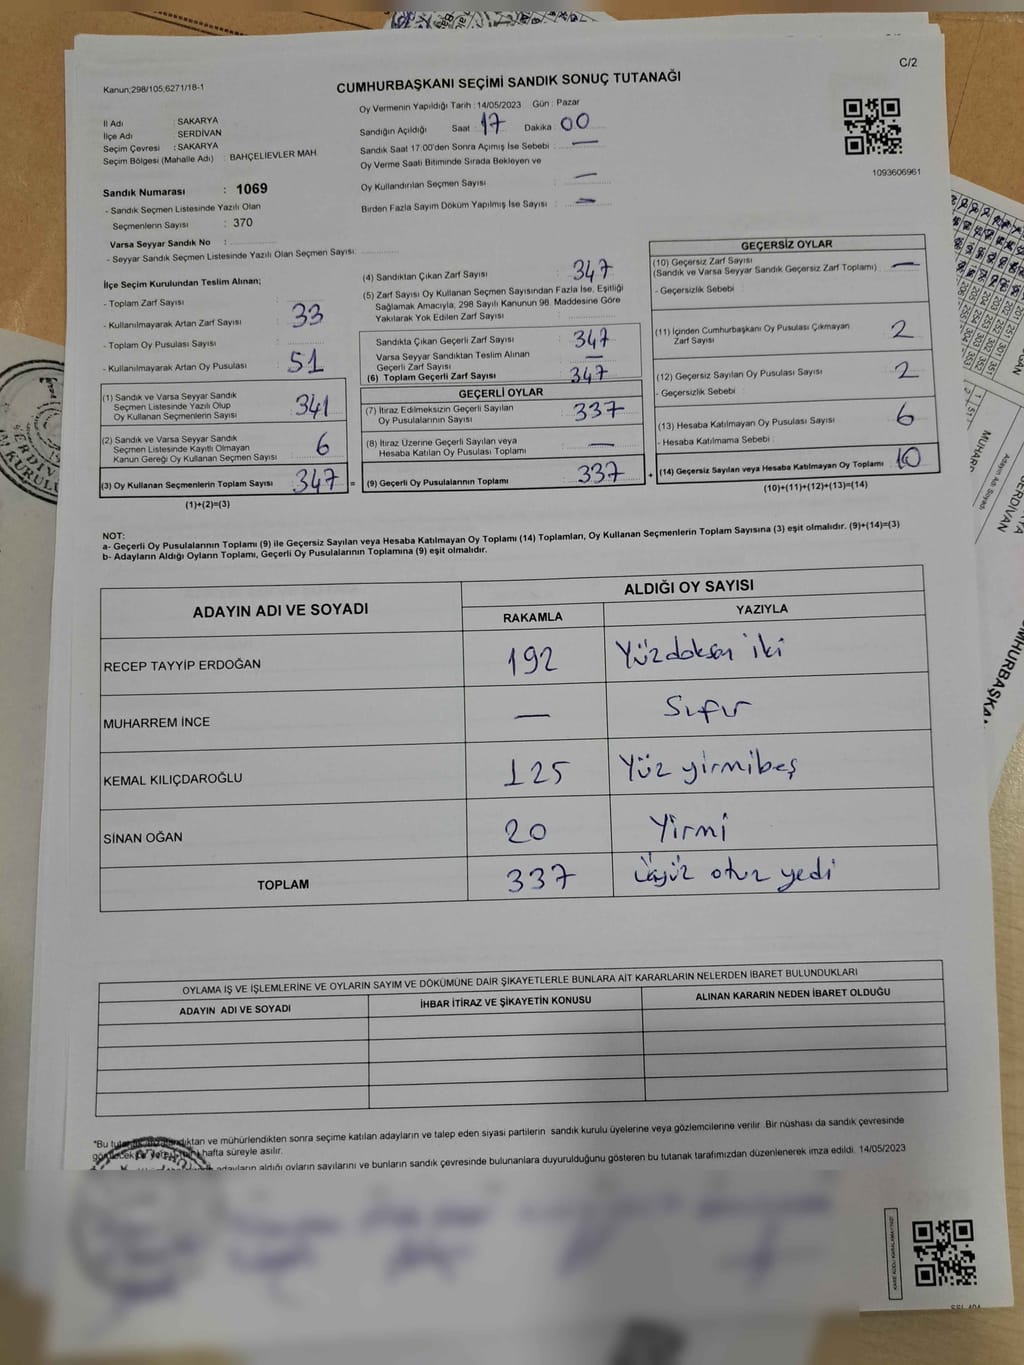 C/2
Kanun;298/105;6271/18-1
CUMHURBAŞKANI SEÇİMİ SANDIK SONUÇ TUTANAĞI
Oy Vermenin Yapıldığı Tarih : 14/05/2023 Gün : Pazar
Sandığın Açıldığı Saat 17 Dakika 00
Sandık Saat 17:00'den Sonra Açımış İse Sebebi : —
Oy Verme Saati Bitiminde Sırada Bekleyen ve
Oy Kullandırılan Seçmen Sayısı : —
Birden Fazla Sayım Döküm Yapılmış İse Sayısı : —
1093606961
İl Adı : SAKARYA
İlçe Adı : SERDİVAN
Seçim Çevresi : SAKARYA
Seçim Bölgesi (Mahalle Adı) : BAHÇELİEVLER MAH.
Sandık Numarası : 1069
- Sandık Seçmen Listesinde Yazılı Olan
Seçmenlerin Sayısı : 370
Varsa Seyyar Sandık No :
- Seyyar Sandık Seçmen Listesinde Yazılı Olan Seçmen Sayısı:
İlçe Seçim Kurulundan Teslim Alınan;
- Toplam Zarf Sayısı :
- Kullanılmayarak Artan Zarf Sayısı : 33
- Toplam Oy Pusulası Sayısı :
- Kullanılmayarak Artan Oy Pusulası : 51
(1) Sandık ve Varsa Seyyar Sandık
Seçmen Listesinde Yazılı Olup
Oy Kullanan Seçmenlerin Sayısı : 341
(2) Sandık ve Varsa Seyyar Sandık
Seçmen Listesinde Kayıtlı Olmayan
Kanun Gereği Oy Kullanan Seçmen Sayısı : 6
(3) Oy Kullanan Seçmenlerin Toplam Sayısı : 347 =
(1)+(2)=(3)
(4) Sandıktan Çıkan Zarf Sayısı : 347
(5) Zarf Sayısı Oy Kullanan Seçmen Sayısından Fazla İse, Eşitliği
Sağlamak Amacıyla, 298 Sayılı Kanunun 98. Maddesine Göre
Yakılarak Yok Edilen Zarf Sayısı :
Sandıkta Çıkan Geçerli Zarf Sayısı : 347
Varsa Seyyar Sandıktan Teslim Alınan
Geçerli Zarf Sayısı : —
(6) Toplam Geçerli Zarf Sayısı : 347
GEÇERLİ OYLAR
(7) İtiraz Edilmeksizin Geçerli Sayılan
Oy Pusulalarının Sayısı : 337
(8) İtiraz Üzerine Geçerli Sayılan veya
Hesaba Katılan Oy Pusulası Toplamı : —
(9) Geçerli Oy Pusulalarının Toplamı : 337 +
GEÇERSİZ OYLAR
(10) Geçersiz Zarf Sayısı
(Sandık ve Varsa Seyyar Sandık Geçersiz Zarf Toplamı) : —
- Geçersizlik Sebebi :
(11) İçinden Cumhurbaşkanı Oy Pusulası Çıkmayan
Zarf Sayısı : 2
(12) Geçersiz Sayılan Oy Pusulası Sayısı : 2
- Geçersizlik Sebebi :
(13) Hesaba Katılmayan Oy Pusulası Sayısı : 6
- Hesaba Katılmama Sebebi :
(14) Geçersiz Sayılan veya Hesaba Katılmayan Oy Toplamı : 10
(10)+(11)+(12)+(13)=(14)
NOT:
a- Geçerli Oy Pusulalarının Toplamı (9) ile Geçersiz Sayılan veya Hesaba Katılmayan Oy Toplamı (14) Toplamları, Oy Kullanan Seçmenlerin Toplam Sayısına (3) eşit olmalıdır. (9)+(14)=(3)
b- Adayların Aldığı Oyların Toplamı, Geçerli Oy Pusulalarının Toplamına (9) eşit olmalıdır.
ADAYIN ADI VE SOYADI
ALDIĞI OY SAYISI
RAKAMLA YAZIYLA
RECEP TAYYİP ERDOĞAN 192 Yüzdoksan iki
MUHARREM İNCE — Sıfır
KEMAL KILIÇDAROĞLU 125 Yüz yirmibeş
SİNAN OĞAN 20 Yirmi
TOPLAM 337 Üçyüz otuz yedi
OYLAMA İŞ VE İŞLEMLERİNE VE OYLARIN SAYIM VE DÖKÜMÜNE DAİR ŞİKAYETLERLE BUNLARA AİT KARARLARIN NELERDEN İBARET BULUNDUKLARI
ADAYIN ADI VE SOYADI İHBAR İTİRAZ VE ŞİKAYETİN KONUSU ALINAN KARARIN NEDEN İBARET OLDUĞU
*Bu mühürlendikten sonra seçime katılan adayların ve talep eden siyasi partilerin sandık kurulu üyelerine veya gözlemcilerine verilir. Bir nüshası da sandık çevresinde
hafta süreyle asılır.
adayların aldığı oyların sayılarını ve bunların sandık çevresinde bulunanlara duyurulduğunu gösteren bu tutanak tarafımızdan düzenlenerek imza edildi. 14/05/2023
KARE KODU KARALAMAYINIZ!